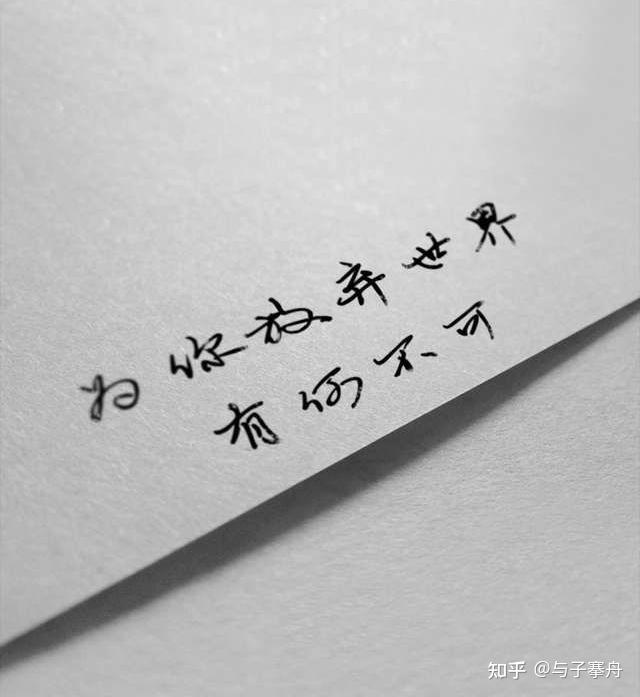 为你放弃世界
有何不可
知乎 @与子搴舟